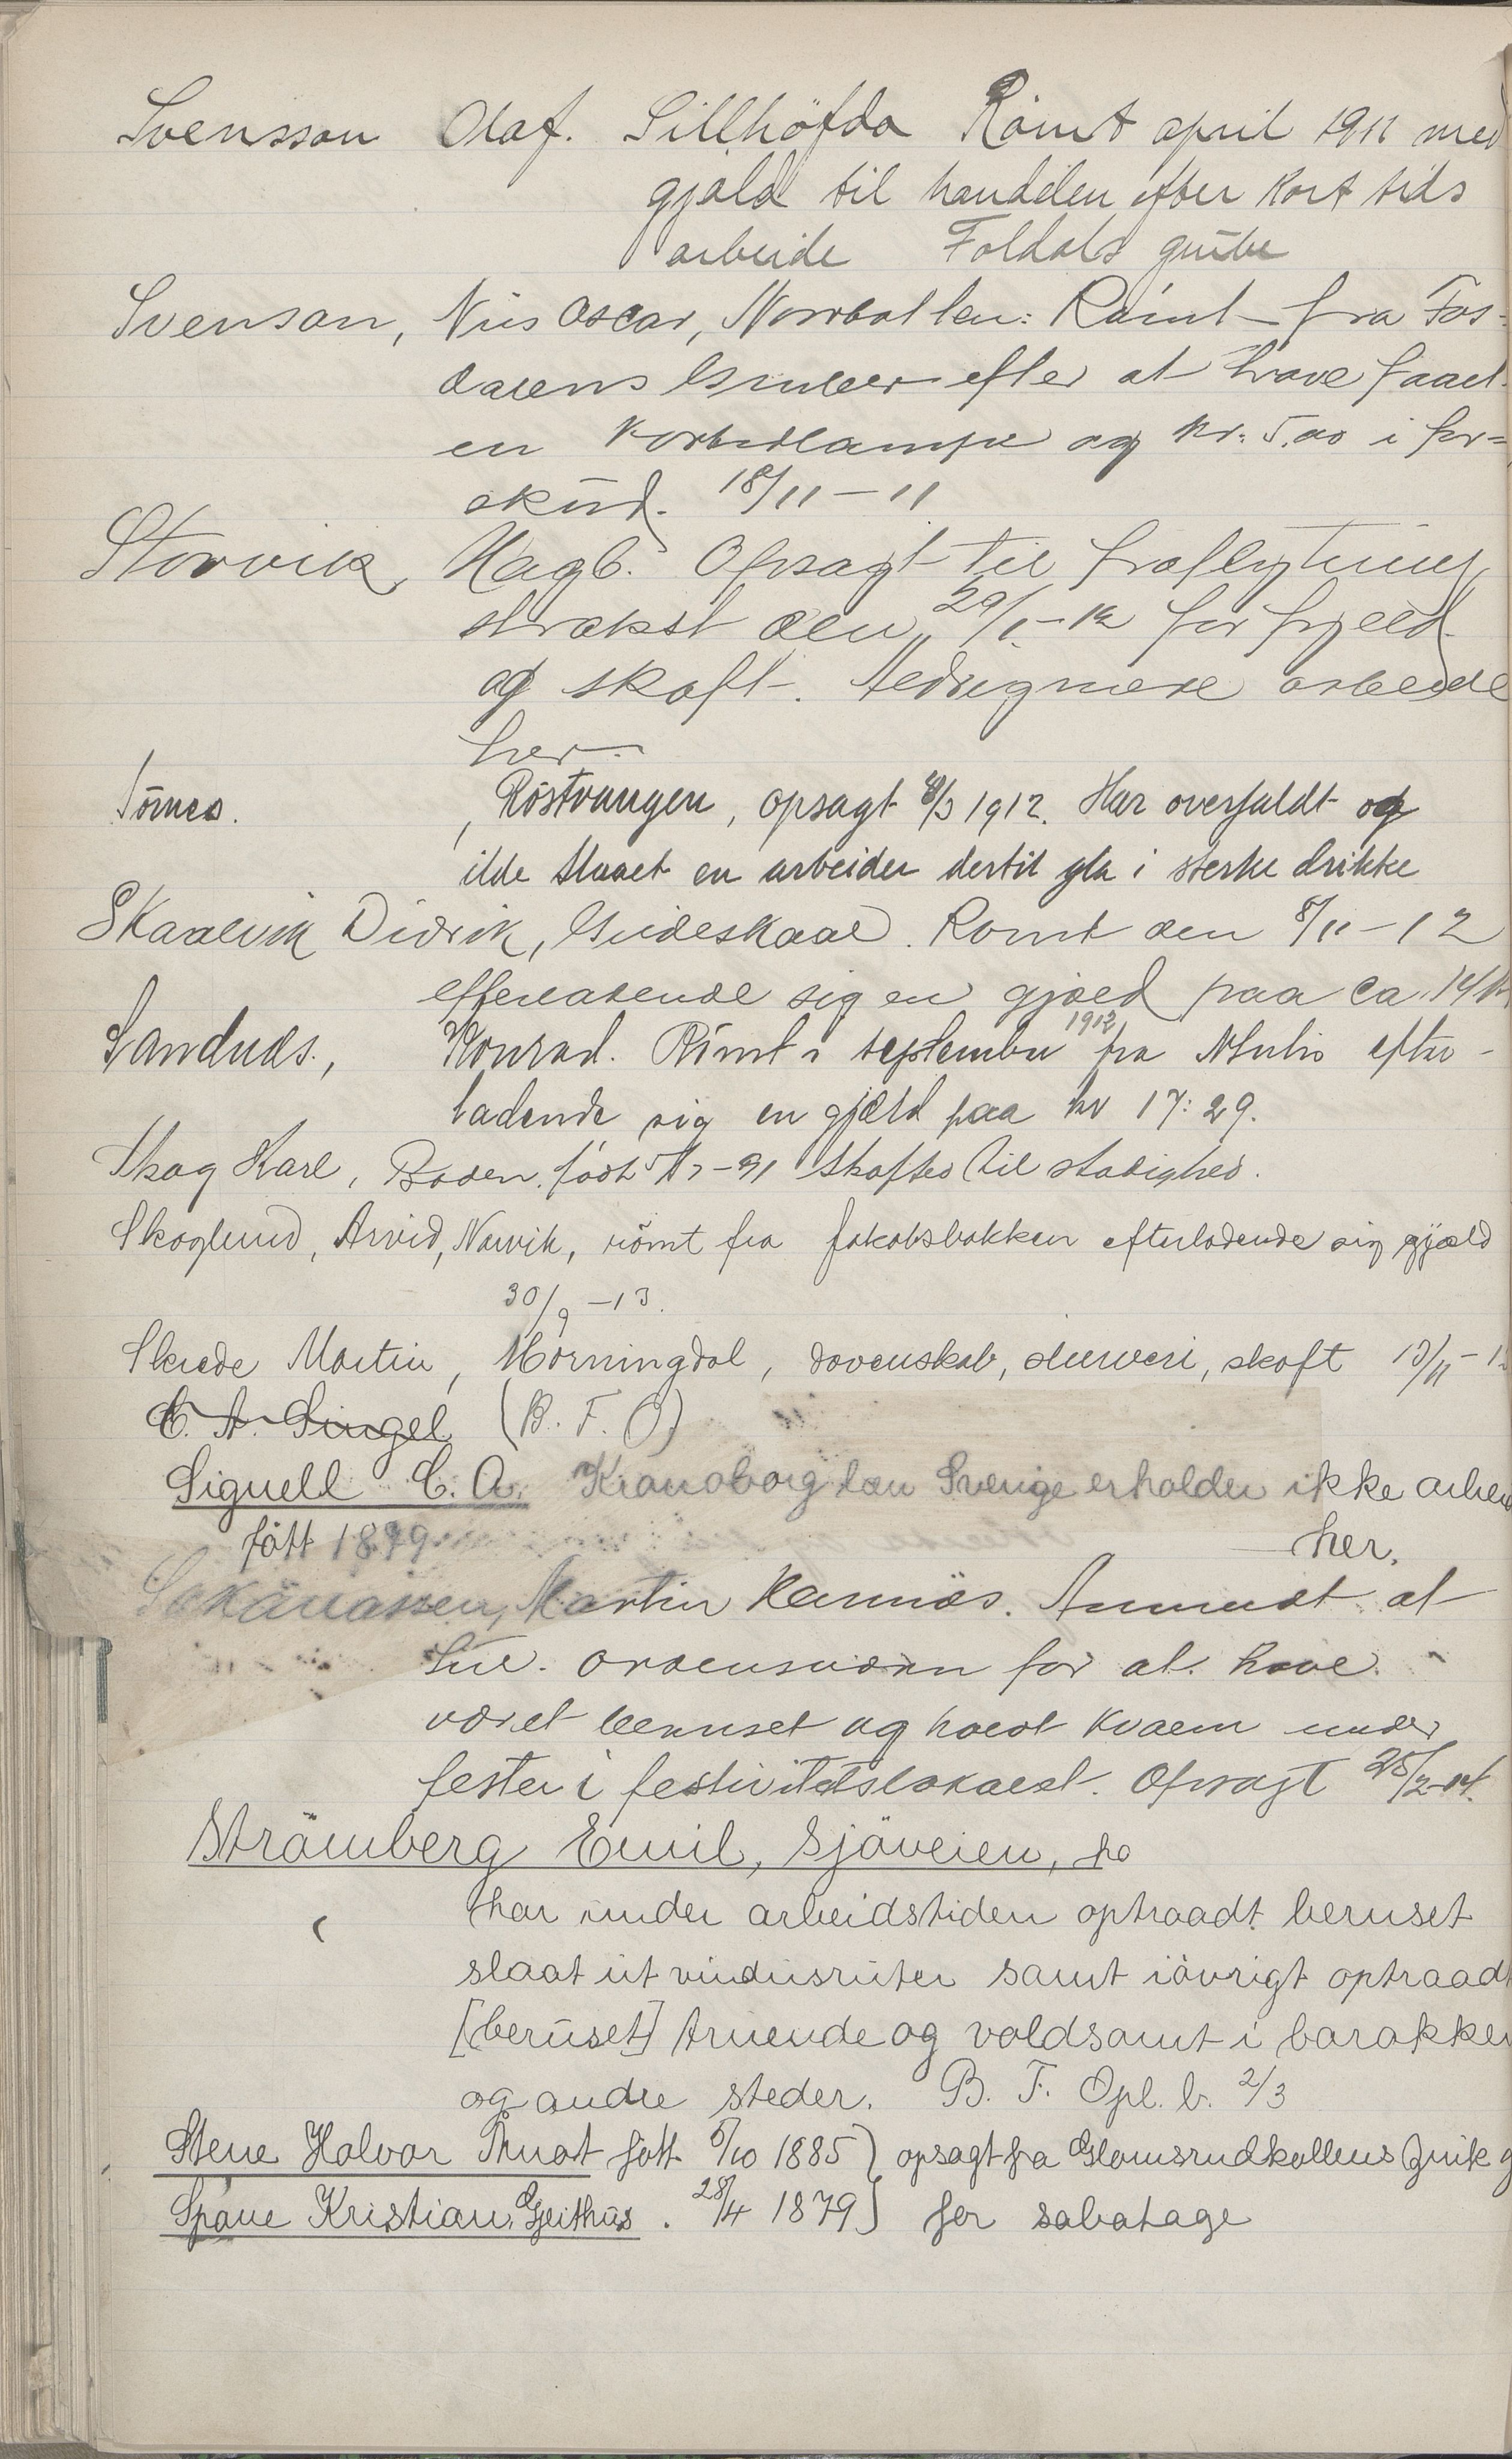 Svensson Olaf. Sillhöfda Römt april 1911 med
gjæld til handelen efter kort tids
arbeide Foldals grube
Svenson, Nils Oscar, Norrbotten: Rømt fra Fos-
dalens Gruber efter at have faaet
en karbidlampe og kr. 5.00 i for=
skud. 18/11-11
Storvik, Hagb. Opsagt til fraflytning
strakst den 29/1-12 for gjæld
og skoft. Aldrig mere arbeide
her.
Sörnes. , Röstvangen, opsagt 8/3 1912. Har overfaldt og
ilde slaaet en arbeider dertil gla i sterke drikke
Skaalvik Didrik, Gildeskaal. Romt den 8/11-12
efterladende sig en gjæld paa ca. 14 kr
Sandnds., Konrad. Römt i september 1912 fra efter-
ladende sig en gjæld paa kr 17:29.
Skog Karl, Boden. født -91 Skoftes til stadighed.
Skoglund, Arvid, Narvik, römt fra Jakobsbakken efterladende sig gjæld
30/9-13.
Skrede Martin, Horningdal, dovenskab, slurveri, skoft 13/11-1
C. A. Singel (B. F. O)
Signell C. A. Kronoborg län Sverige erholder ikke arbeid
fött 1879 her.
Sakäriassen, Martin Hennæs. Anmeldt af
Sul. ordensværn for at have
været beruset og holdt kvalm under
fester i festivitetslokalet. Opsagt 25/2-14.
Strömberg Emil, Sjöveien,
har under arbeidstiden optraadt beruset
slaat ut vindusruter samt iövrigt optraadt
[beruset] truende og voldsomt i barakker
og andre steder. B. F. Opl. b. 2/3
Stene Halvor Thuat fött 5/10 1885) opsagt fra Glomsrudkollens Zink g
Spone Kristian, Gjeithus. 28/4 1879) for sabotage